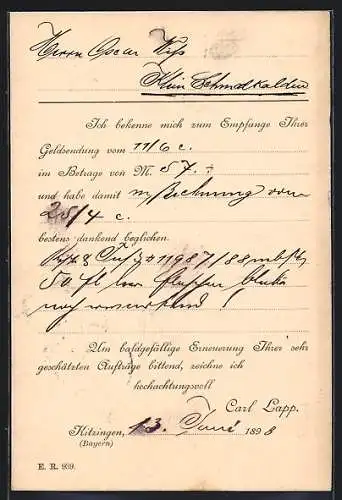 Herrn Oscar
Klein Schmalkalden
Ich bekenne mich zum Empfange Ihrer
Geldsendung vom 11/6 c.
im Betrage von M. 57.÷
und habe damit m/Rechnung vom
25/4 c.
bestens dankend beglichen.
# 11987/88
50 leere Flaschen
noch !
Um baldgefällige Erneuerung Ihrer sehr
geschätzten Aufträge bittend, zeichne ich
hochachtungsvoll
Carl Lapp.
Kitzingen, 13. Juni 1898
(Bayern)
E. R. 909.